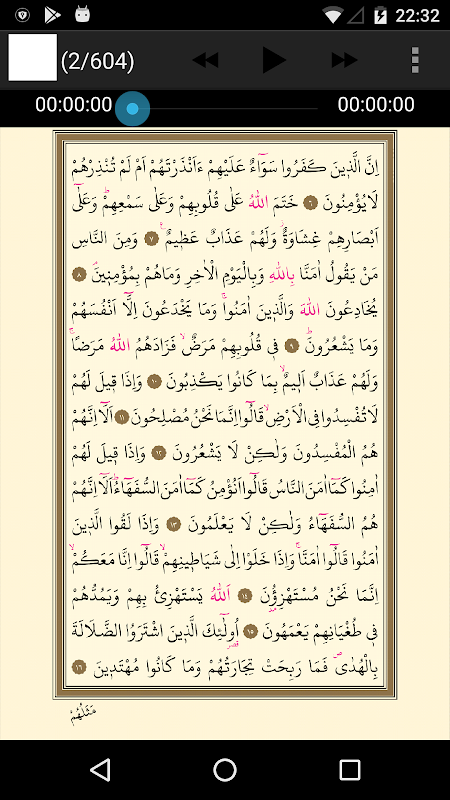 22:32
(2/604)
00:00:00 00:00:00
اِنَّ الَّذ۪ينَ كَفَرُوا سَوَٓاءٌ عَلَيْهِمْ ءَاَنْذَرْتَهُمْ اَمْ لَمْ تُنْذِرْهُمْ
لَا يُؤْمِنُونَ ﴿٦﴾ خَتَمَ اللّٰهُ عَلٰى قُلُوبِهِمْ وَعَلٰى سَمْعِهِمْۜ وَعَلٰٓى
اَبْصَارِهِمْ غِشَاوَةٌۘ وَلَهُمْ عَذَابٌ عَظ۪يمٌ۟ ﴿٧﴾ وَمِنَ النَّاسِ
مَنْ يَقُولُ اٰمَنَّا بِاللّٰهِ وَبِالْيَوْمِ الْاٰخِرِ وَمَا هُمْ بِمُؤْمِن۪ينَۢ ﴿٨﴾
يُخَادِعُونَ اللّٰهَ وَالَّذ۪ينَ اٰمَنُواۚ وَمَا يَخْدَعُونَ اِلَّٓا اَنْفُسَهُمْ
وَمَا يَشْعُرُونَۜ ﴿٩﴾ ف۪ي قُلُوبِهِمْ مَرَضٌۙ فَزَادَهُمُ اللّٰهُ مَرَضًاۚ
وَلَهُمْ عَذَابٌ اَل۪يمٌۙ بِمَا كَانُوا يَكْذِبُونَ ﴿١٠﴾ وَاِذَا ق۪يلَ لَهُمْ
لَا تُفْسِدُوا فِي الْاَرْضِۙ قَالُٓوا اِنَّمَا نَحْنُ مُصْلِحُونَ ﴿١١﴾ اَلَٓا اِنَّهُمْ
هُمُ الْمُفْسِدُونَ وَلٰكِنْ لَا يَشْعُرُونَ ﴿١٢﴾ وَاِذَا ق۪يلَ لَهُمْ
اٰمِنُوا كَمَٓا اٰمَنَ النَّاسُ قَالُٓوا اَنُؤْمِنُ كَمَٓا اٰمَنَ السُّفَهَٓاءُۜ اَلَٓا اِنَّهُمْ
هُمُ السُّفَهَٓاءُ وَلٰكِنْ لَا يَعْلَمُونَ ﴿١٣﴾ وَاِذَا لَقُوا الَّذ۪ينَ
اٰمَنُوا قَالُٓوا اٰمَنَّاۚ وَاِذَا خَلَوْا اِلٰى شَيَاط۪ينِهِمْۙ قَالُٓوا اِنَّا مَعَكُمْۙ
اِنَّمَا نَحْنُ مُسْتَهْزِؤُ۫نَ ﴿١٤﴾ اَللّٰهُ يَسْتَهْزِئُ بِهِمْ وَيَمُدُّهُمْ
ف۪ي طُغْيَانِهِمْ يَعْمَهُونَ ﴿١٥﴾ اُو۬لٰٓئِكَ الَّذ۪ينَ اشْتَرَوُا الضَّلَالَةَ
بِالْهُدٰىۖ فَمَا رَبِحَتْ تِجَارَتُهُمْ وَمَا كَانُوا مُهْتَد۪ينَ ﴿١٦﴾
مَثَلُهُمْ